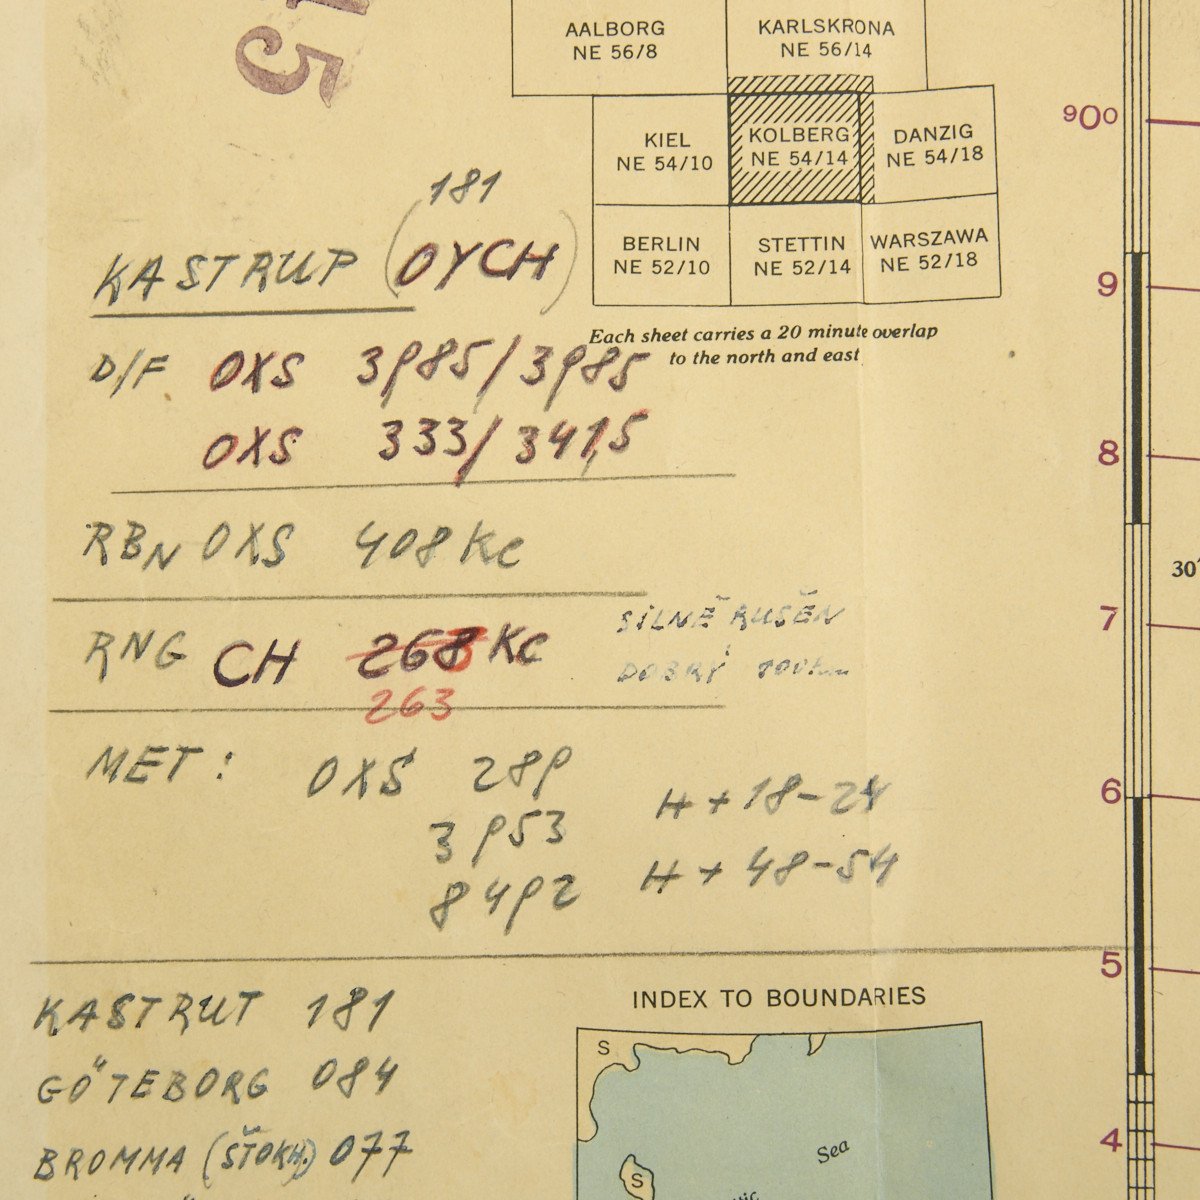 15
AALBORG
NE 56/8
KARLSKRONA
NE 56/14
KIEL
NE 54/10
KOLBERG
NE 54/14
DANZIG
NE 54/18
BERLIN
NE 52/10
STETTIN
NE 52/14
WARSZAWA
NE 52/18
Each sheet carries a 20 minute overlap
to the north and east
181
KASTRUP (OYCH)
D/F OXS 3985/3985
OXS 333/341,5
RBN OXS 408 Kc
RNG CH 268 Kc
263
SILNĚ RUŠEN
DOBRÝ
MET: OXS 289
3953 H + 18-24
8492 H + 48-54
KASTRUT 181
GÖTEBORG 084
BROMMA (ŠTOKH.) 077
INDEX TO BOUNDARIES
S
Sea
S
90°
9
8
30'
7
6
5
4